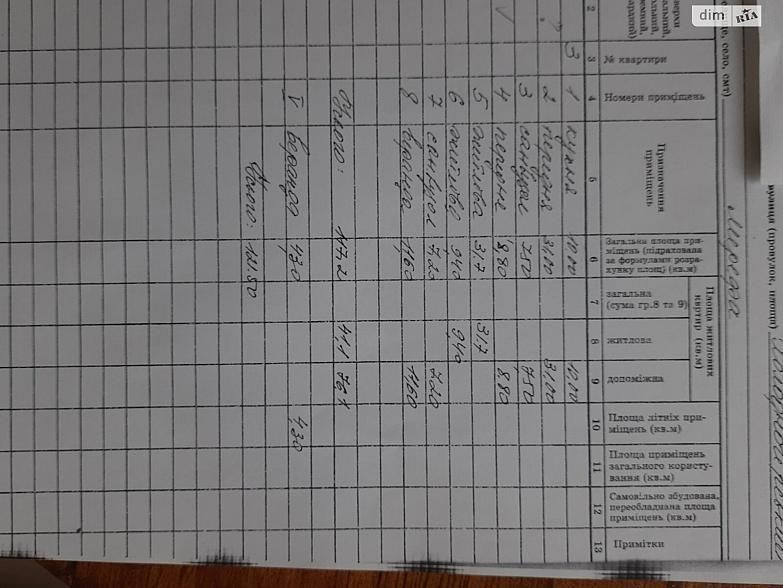 dim RIA
село, смт)
вулиця (провулок, площа)
№ квартири
Номери приміщень
Призначення приміщень
Загальна площа приміщень (підрахована за формулами розрахунку площ) (кв.м)
Площа житлових квартир (кв.м)
загальна (сума гр.8 та 9)
житлова
допоміжна
Площа літніх приміщень (кв.м)
Площа приміщень загального користування (кв.м)
Самовільно збудована, переобладнана площа приміщень (кв.м)
Примітки
2 3 4 5 6 7 8 9 10 11 12 13
3 1 кухня
2
3 санвузол 7.50 7.50
4 8.80 8.80
5 31.7 31.7
6 9.40 9.40
7 санвузол 7.20 7.20
8 11.60 11.60
Усього: 117.2 41.1 76.1
I веранда 4.30 4.30
Усього: 121.50